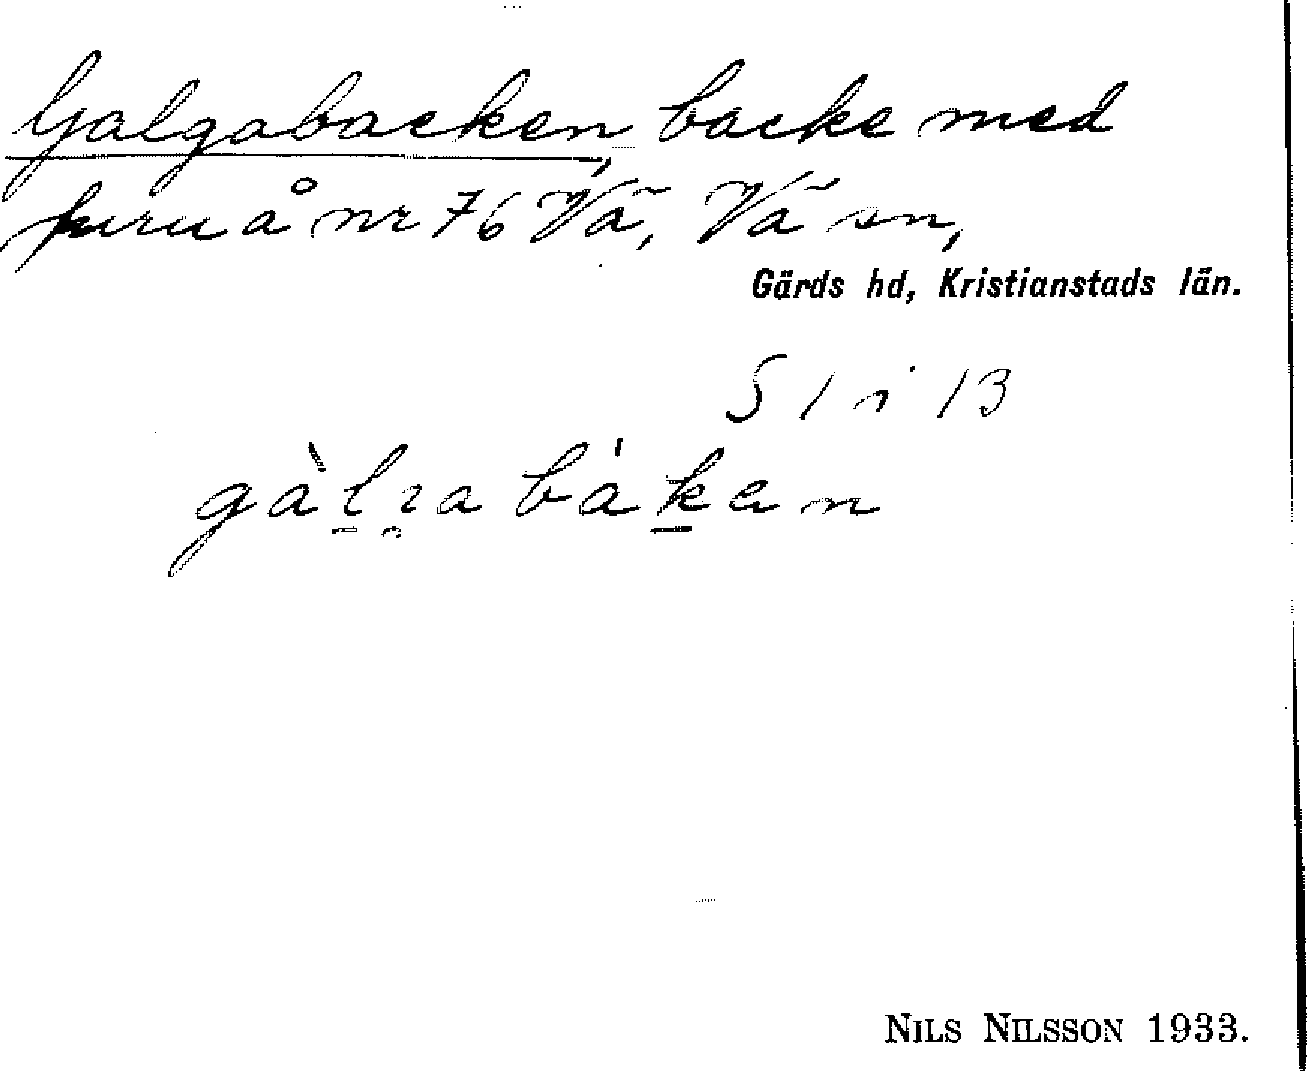 Galgabacken, backe med
furu å nr 76 Vä, Vä sn,
Gärds hd, Kristianstads län.
S 1 i 13
gàl̠ɿ̯a bák̠en
NILS NILSSON 1933.